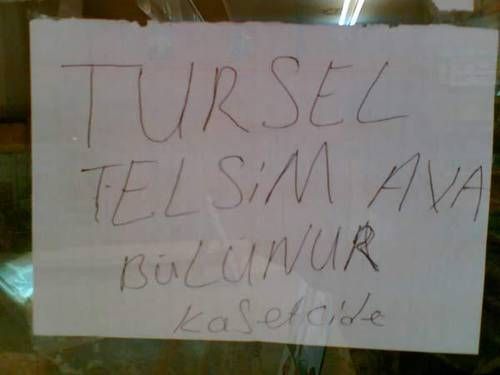 TURSEL
TELSİM AVA
BÜLÜNUR
Kasetcide